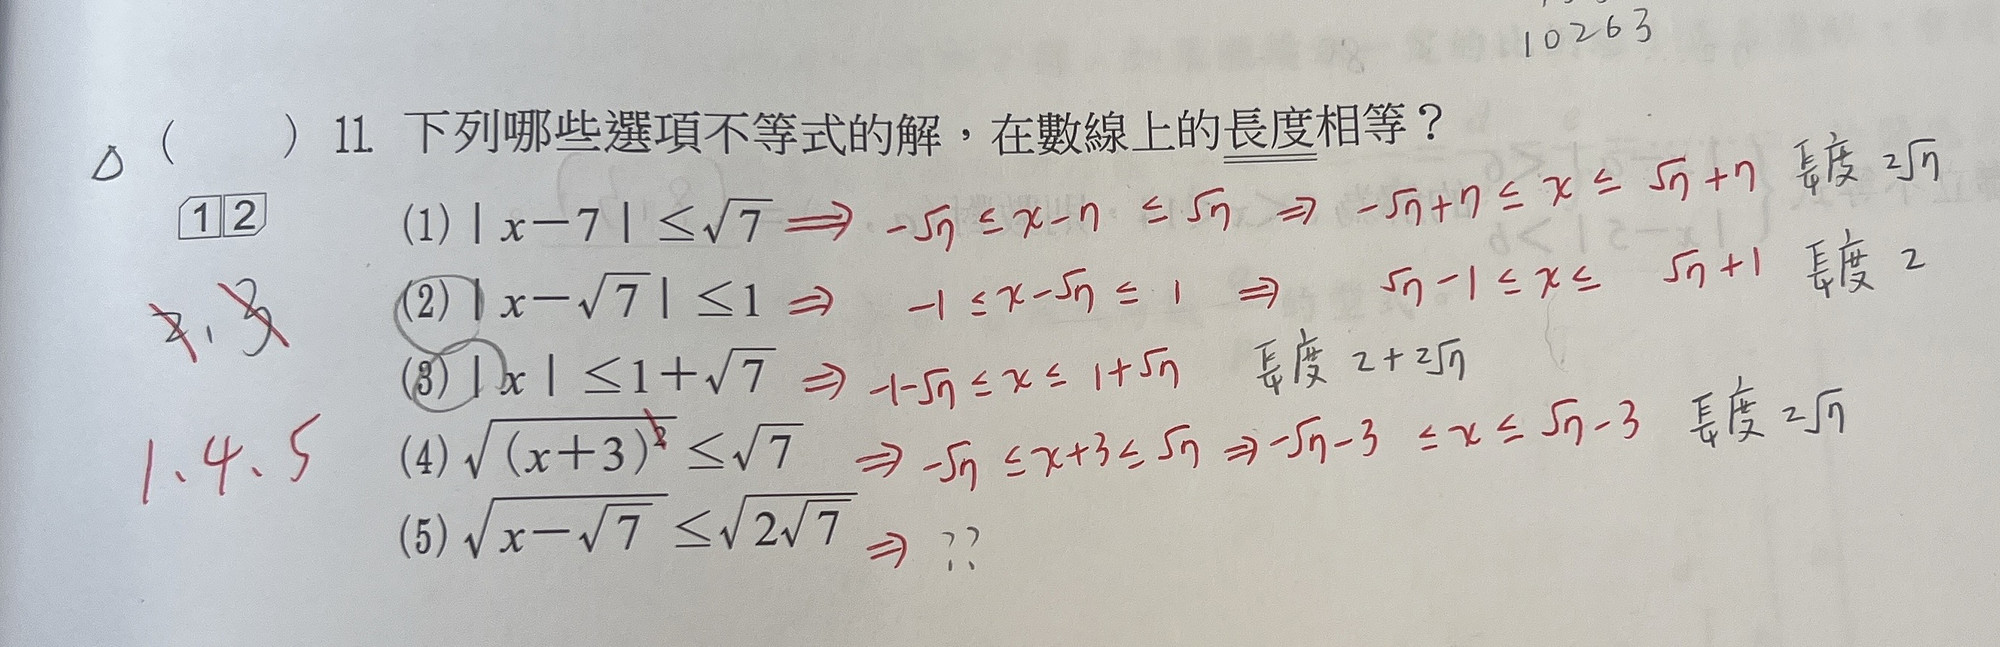 10263
△ (　　) 11. 下列哪些選項不等式的解，在數線上的長度相等？
12
(1) | x－7 | ≤√7 ⇒ -√7 ≤ x-7 ≤ √7 ⇒ -√7+7 ≤ x ≤ √7+7 長度 2√7
(2) | x－√7 | ≤1 ⇒ -1 ≤ x-√7 ≤ 1 ⇒ √7-1 ≤ x ≤ √7+1 長度 2
2、3
(3) | x | ≤1＋√7 ⇒ -1-√7 ≤ x ≤ 1+√7 長度 2+2√7
1、4、5
(4) √(x＋3)² ≤√7 ⇒ -√7 ≤ x+3 ≤ √7 ⇒ -√7-3 ≤ x ≤ √7-3 長度 2√7
(5) √x－√7 ≤√2√7 ⇒ ??